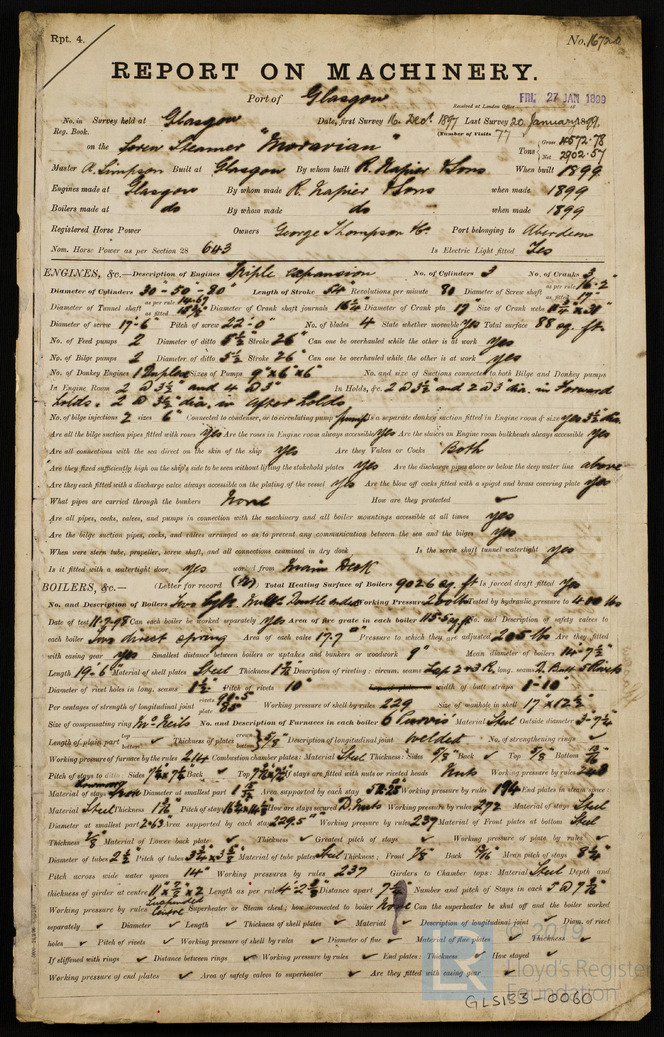 Rpt. 4.
No. 16720
REPORT ON MACHINERY.
Port of Glasgow
Received at London Office FRI. 27 JAN 1899
No. in Survey held at Glasgow Date, first Survey 16 Dec. 1897 Last Survey 20 January 1899
Reg. Book. (Number of Visits 77)
on the Screw Steamer "Moravian" Tons Gross 4572.78 Net 2902.57
Master A. Simpson Built at Glasgow By whom built R. Napier & Sons When built 1899
Engines made at Glasgow By whom made R. Napier & Sons when made 1899
Boilers made at do By whom made do when made 1899
Registered Horse Power Owners George Thompson & Co. Port belonging to Aberdeen
Nom. Horse Power as per Section 28 643 Is Electric Light fitted Yes
ENGINES, &c.—Description of Engines Triple expansion No. of Cylinders 3 No. of Cranks 3
Diameter of Cylinders 30"-50"-80" Length of Stroke 54" Revolutions per minute 80 Diameter of Screw shaft as per rule 16.2" as fitted 17"
Diameter of Tunnel shaft as per rule 14.67 as fitted Diameter of Crank shaft journals 16¼" Diameter of Crank pin 17" Size of Crank webs
Diameter of screw 17-6" Pitch of screw 22-0" No. of blades 4 State whether moveable yes Total surface 88 sq. ft.
No. of Feed pumps 2 Diameter of ditto Stroke 26" Can one be overhauled while the other is at work yes
No. of Bilge pumps 2 Diameter of ditto 5½" Stroke 26" Can one be overhauled while the other is at work yes
No. of Donkey Engines 1 Duplex Sizes of Pumps 9"x6"x6" No. and size of Suctions connected to both Bilge and Donkey pumps
In Engine Room 2 @ 3½" and 4 @ 3" In Holds, &c. 2 @ 3½" and 2 @ 3" dia. in Forward
Holds. 2 @ 3½" dia. in after holds
No. of bilge injections 2 sizes 6" Connected to condenser, or to circulating pump pump Is a separate donkey suction fitted in Engine room & size yes 3½" dia.
Are all the bilge suction pipes fitted with roses yes Are the roses in Engine room always accessible yes Are the sluices on Engine room bulkheads always accessible yes
Are all connections with the sea direct on the skin of the ship yes Are they Valves or Cocks Both
Are they fixed sufficiently high on the ship's side to be seen without lifting the stokehold plates yes Are the discharge pipes above or below the deep water line above
Are they each fitted with a discharge valve always accessible on the plating of the vessel yes Are the blow off cocks fitted with a spigot and brass covering plate yes
What pipes are carried through the bunkers None How are they protected ✓
Are all pipes, cocks, valves, and pumps in connection with the machinery and all boiler mountings accessible at all times yes
Are the bilge suction pipes, cocks, and valves arranged so as to prevent any communication between the sea and the bilges yes
When were stern tube, propeller, screw shaft, and all connections examined in dry dock Is the screw shaft tunnel watertight yes
Is it fitted with a watertight door yes worked from Main Deck
BOILERS, &c.— (Letter for record (N)) Total Heating Surface of Boilers 9026 sq. ft. Is forced draft fitted yes
No. and Description of Boilers Two Cyl. Mult. Double ended Working Pressure 200 lbs Tested by hydraulic pressure to 400 lbs
Date of test 11.7.98 Can each boiler be worked separately yes Area of fire grate in each boiler 115.5 sq. ft. No. and Description of safety valves to
each boiler Two direct spring Area of each valve 17.7 Pressure to which they are adjusted 205 lbs Are they fitted
with easing gear yes Smallest distance between boilers or uptakes and bunkers or woodwork 9" Mean diameter of boilers 14-7½"
Length 19-6" Material of shell plates Steel Thickness Description of riveting: circum. seams Lap 2 & 3 R. long. seams D. Butt 5 Rivets
Diameter of rivet holes in long. seams 1½" Pitch of rivets 10" width of butt straps 1-10"
Per centages of strength of longitudinal joint rivets plate 85 Working pressure of shell by rules 229 Size of manhole in shell 17"x12½"
Size of compensating ring McNeils No. and Description of Furnaces in each boiler 6 Purves Material Steel Outside diameter 3-7½"
Length of plain part top bottom ✓ Thickness of plates crown bottom 5/8" Description of longitudinal joint welded No. of strengthening rings ✓
Working pressure of furnace by the rules 214 Combustion chamber plates: Material Steel Thickness: Sides 5/8" Back ✓ Top 5/8" Bottom
Pitch of stays to ditto: Sides 7½"x7½" Back ✓ Top If stays are fitted with nuts or riveted heads Nuts Working pressure by rules
Material of stays Diameter at smallest part Area supported by each stay Working pressure by rules 194 End plates in steam space:
Material Steel Thickness Pitch of stays How are stays secured D. Nuts Working pressure by rules 272 Material of stays Steel
Diameter at smallest part 2.63 Area supported by each stay 229.5" Working pressure by rules 239 Material of Front plates at bottom Steel
Thickness 7/8" Material of Lower back plate ✓ Thickness ✓ Greatest pitch of stays ✓ Working pressure of plate by rules ✓
Diameter of tubes 2½" Pitch of tubes Material of tube plates Steel Thickness: Front 7/8" Back 13/16" Mean pitch of stays
Pitch across wide water spaces 14" Working pressures by rules 237 Girders to Chamber tops: Material Steel Depth and
thickness of girder at centre Length as per rule Distance apart Number and pitch of Stays in each
Working pressure by rules Superheater or Steam chest; how connected to boiler None Can the superheater be shut off and the boiler worked
separately ✓ Diameter ✓ Length ✓ Thickness of shell plates ✓ Material Description of longitudinal joint ✓ Diam. of rivet
holes ✓ Pitch of rivets ✓ Working pressure of shell by rules ✓ Diameter of flue ✓ Material of flue plates ✓ Thickness
If stiffened with rings ✓ Distance between rings ✓ Working pressure by rules ✓ End plates: Thickness ✓ How stayed ✓
Working pressure of end plates ✓ Area of safety valves to superheater ✓ Are they fitted with easing gear ✓
© 2019
LR
Lloyd's Register
Foundation
GLS153-0060